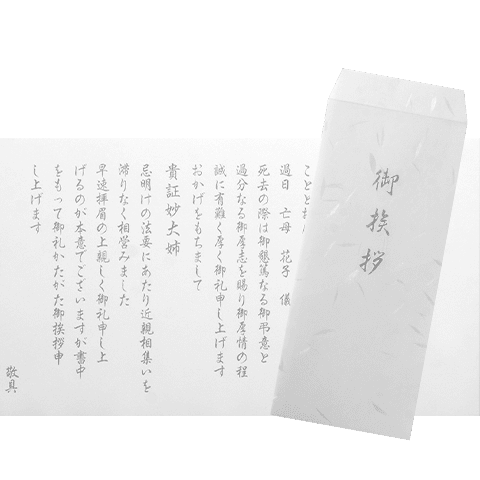 御挨拶
過日 亡母 花子 儀
死去の際は御懇篤なる御弔意と
過分なる御厚志を賜り御厚情の程
誠に有難く厚く御礼申し上げます
おかげをもちまして
貴証妙大姉
忌明けの法要にあたり近親相集いを
滞りなく相営みました
早速拝眉の上親しく御礼申し上
げるのが本意でございますが書中
をもって御礼かたがた御挨拶申
し上げます
敬具